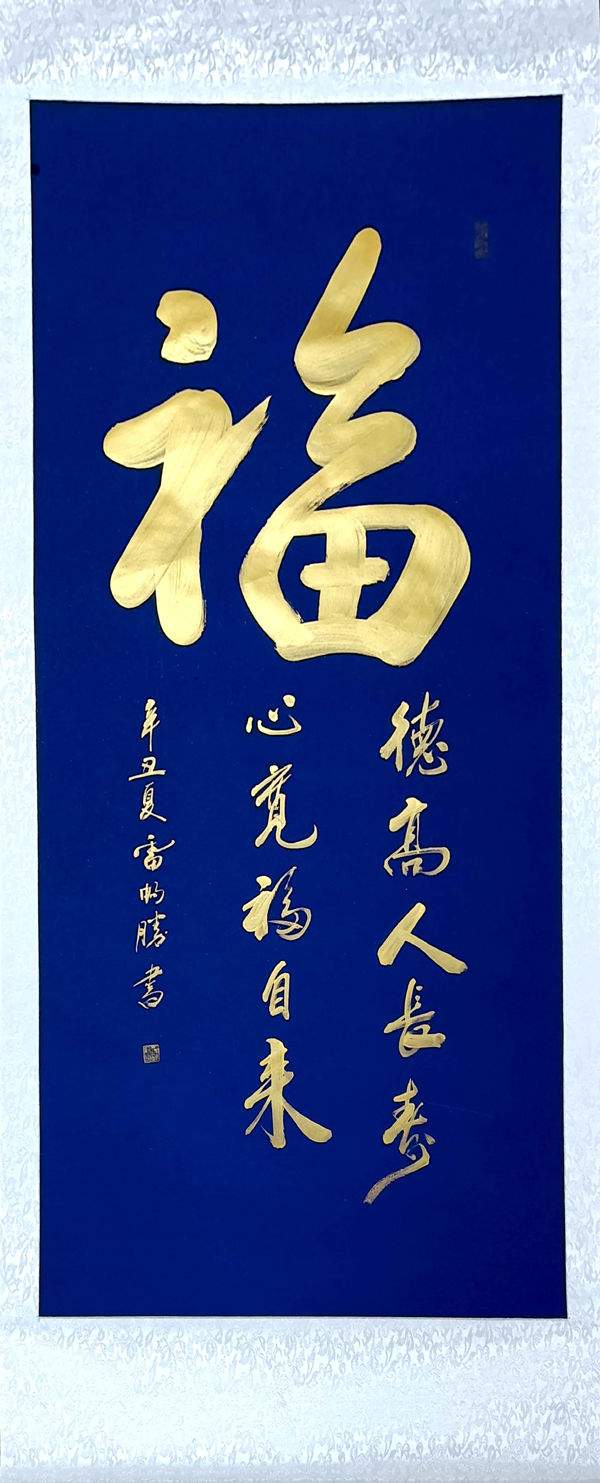 福
德高人長寿
心寬福自来
辛丑夏雷㡯勝書